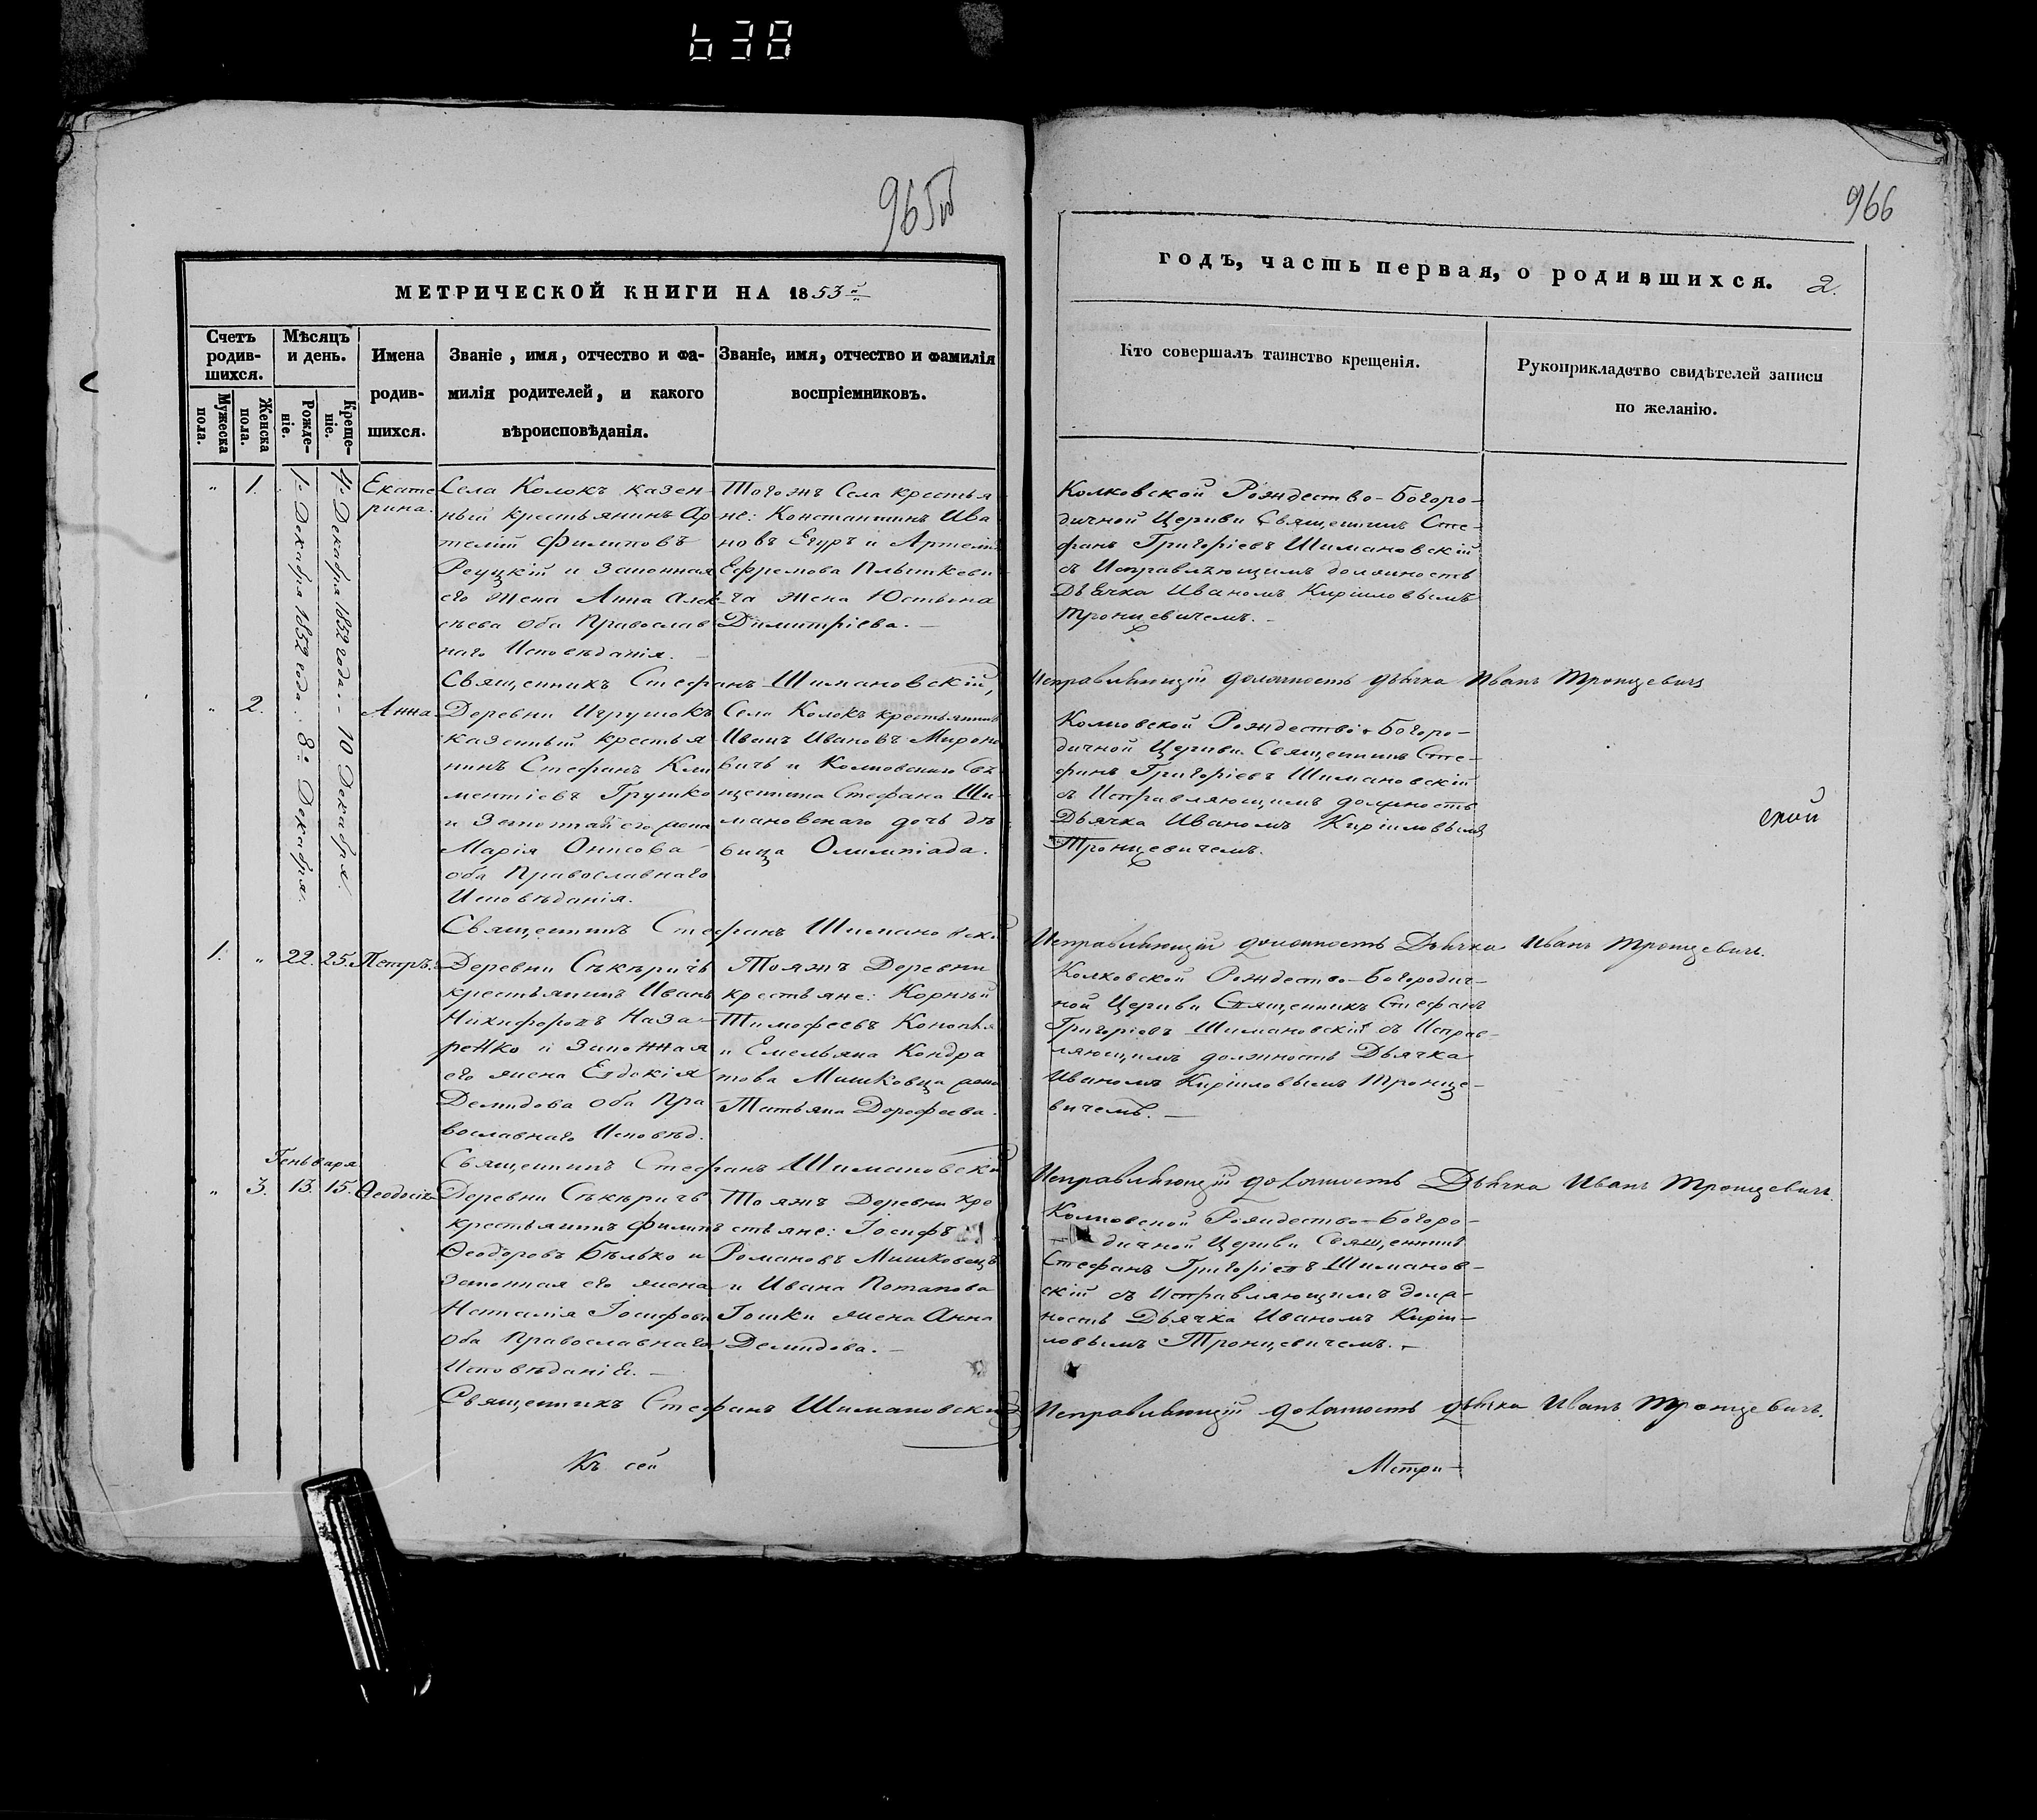 638
965об
966
МЕТРИЧЕСКОЙ КНИГИ НА 1853й
годъ, часть первая, о родившихся. 2.
Счетъ родив-шихся.
Мѣсяцъ и день.
Имена родив-шихся.
Званіе, имя, отчество и фа-
милія родителей, и какого
вѣроисповѣданія.
Званіе, имя, отчество и фамилія
воспріемниковъ.
Мужеска пола.
Женска пола.
Рожде-ніе.
Креще-ніе.
Кто совершалъ таинство крещенія.
Рукоприкладство свидѣтелей записи
по желанію.
" 1.
1. Декабря 1852 года. 8. Декабря.
4. Декабря 1852 года. – 10 Декабря.
Екате
рина.
Села Колокъ казен-
ный крестьянинъ Ар-
темій Филиповъ
Реуцкій и Законная
его жена Анна Алек-
сѣева Оба Православ
наго Исповѣданія. –
Тогожъ Села крестья-
не: Константинъ Ива
новъ Егуръ и Артемія
Ефремова Плыткеви-
ча жена Юстина
Димитріева. –
Колковской Рождество-Богоро-
дичной Церкви Священникъ Сте-
фанъ Григоріевъ Шимановскій
съ Исправляющимъ должность
Дьячка Иваномъ Кириловымъ
Тронцевичемъ. –
Священникъ Стефанъ Шимановскій,
Исправляющій должность дьячка Иванъ Тронцевичъ
" 2.
Анна
Деревни Игрушокъ
казенный крестья
нинъ Стефанъ Кли
ментіевъ Грушко
и Законная его жена
Марія Онисова
оба Православнаго
Исповѣданія.
Села Колокъ крестьянинъ
Иванъ Ивановъ Мироно
вичъ и Колковскаго Свя
щенника Стефана Ши-
мановскаго дочь дѣ
вица Олимпіада.
Колковской Рождество-Богоро-
дичной Церкви Священникъ Сте-
фанъ Григоріевъ Шимановскій
съ Исправляющимъ должность
Дьячка Иваномъ Кириловымъ
Тронцевичемъ.
ской
Священникъ Стефанъ Шимановскій
Исправляющій должность Дьячка Иванъ Тронцевичъ.
1. " 22. 25. Петръ.
Деревни Сѣкѣричъ
крестьянинъ Иванъ
Никифоровъ Наза-
ренко и Законная
его жена Евдокія
Демидова Оба Пра
вославнаго Исповѣд.
Тояжъ Деревни
крестьяне: Корнѣй
Тимофеевъ Конопля
и Емельяна Кондра
това Мишковца жена
Татьяна Дорофеева.
Колковской Рождество-Богородич-
ной Церкви Священникъ Стефанъ
Григоріевъ Шимановскій съ Исправ-
ляющимъ должность Дьячка
Иваномъ Кириловымъ Тронце-
вичемъ. –
Священникъ Стефанъ Шимановскій
Исправляющій должность Дьячка Иванъ Тронцевичъ.
Геньваря
" 3. 13. 15. Ѳеодосія
Деревни Сѣкѣричъ
крестьянинъ Филипъ
Ѳеодоровъ Бѣлько и
Законная его жена
Наталія Іосифова
Оба Православнаго
Исповѣданія. –
Тояжъ Деревни кре
стьяне: Іосифъ
Романовъ Мишковецъ
и Ивана Потапова
Гошки жена Анна
Демидова. –
Колковской Рождество-Богоро-
дичной Церкви Священникъ
Стефанъ Григоріевъ Шиманов-
скій съ Исправляющимъ долж-
ность Дьячка Иваномъ Кири-
ловымъ Тронцевичемъ. –
Священникъ Стефанъ Шимановскій
Исправляющій должность дьячка Иванъ Тронцевичъ.
Къ сей
Метри-